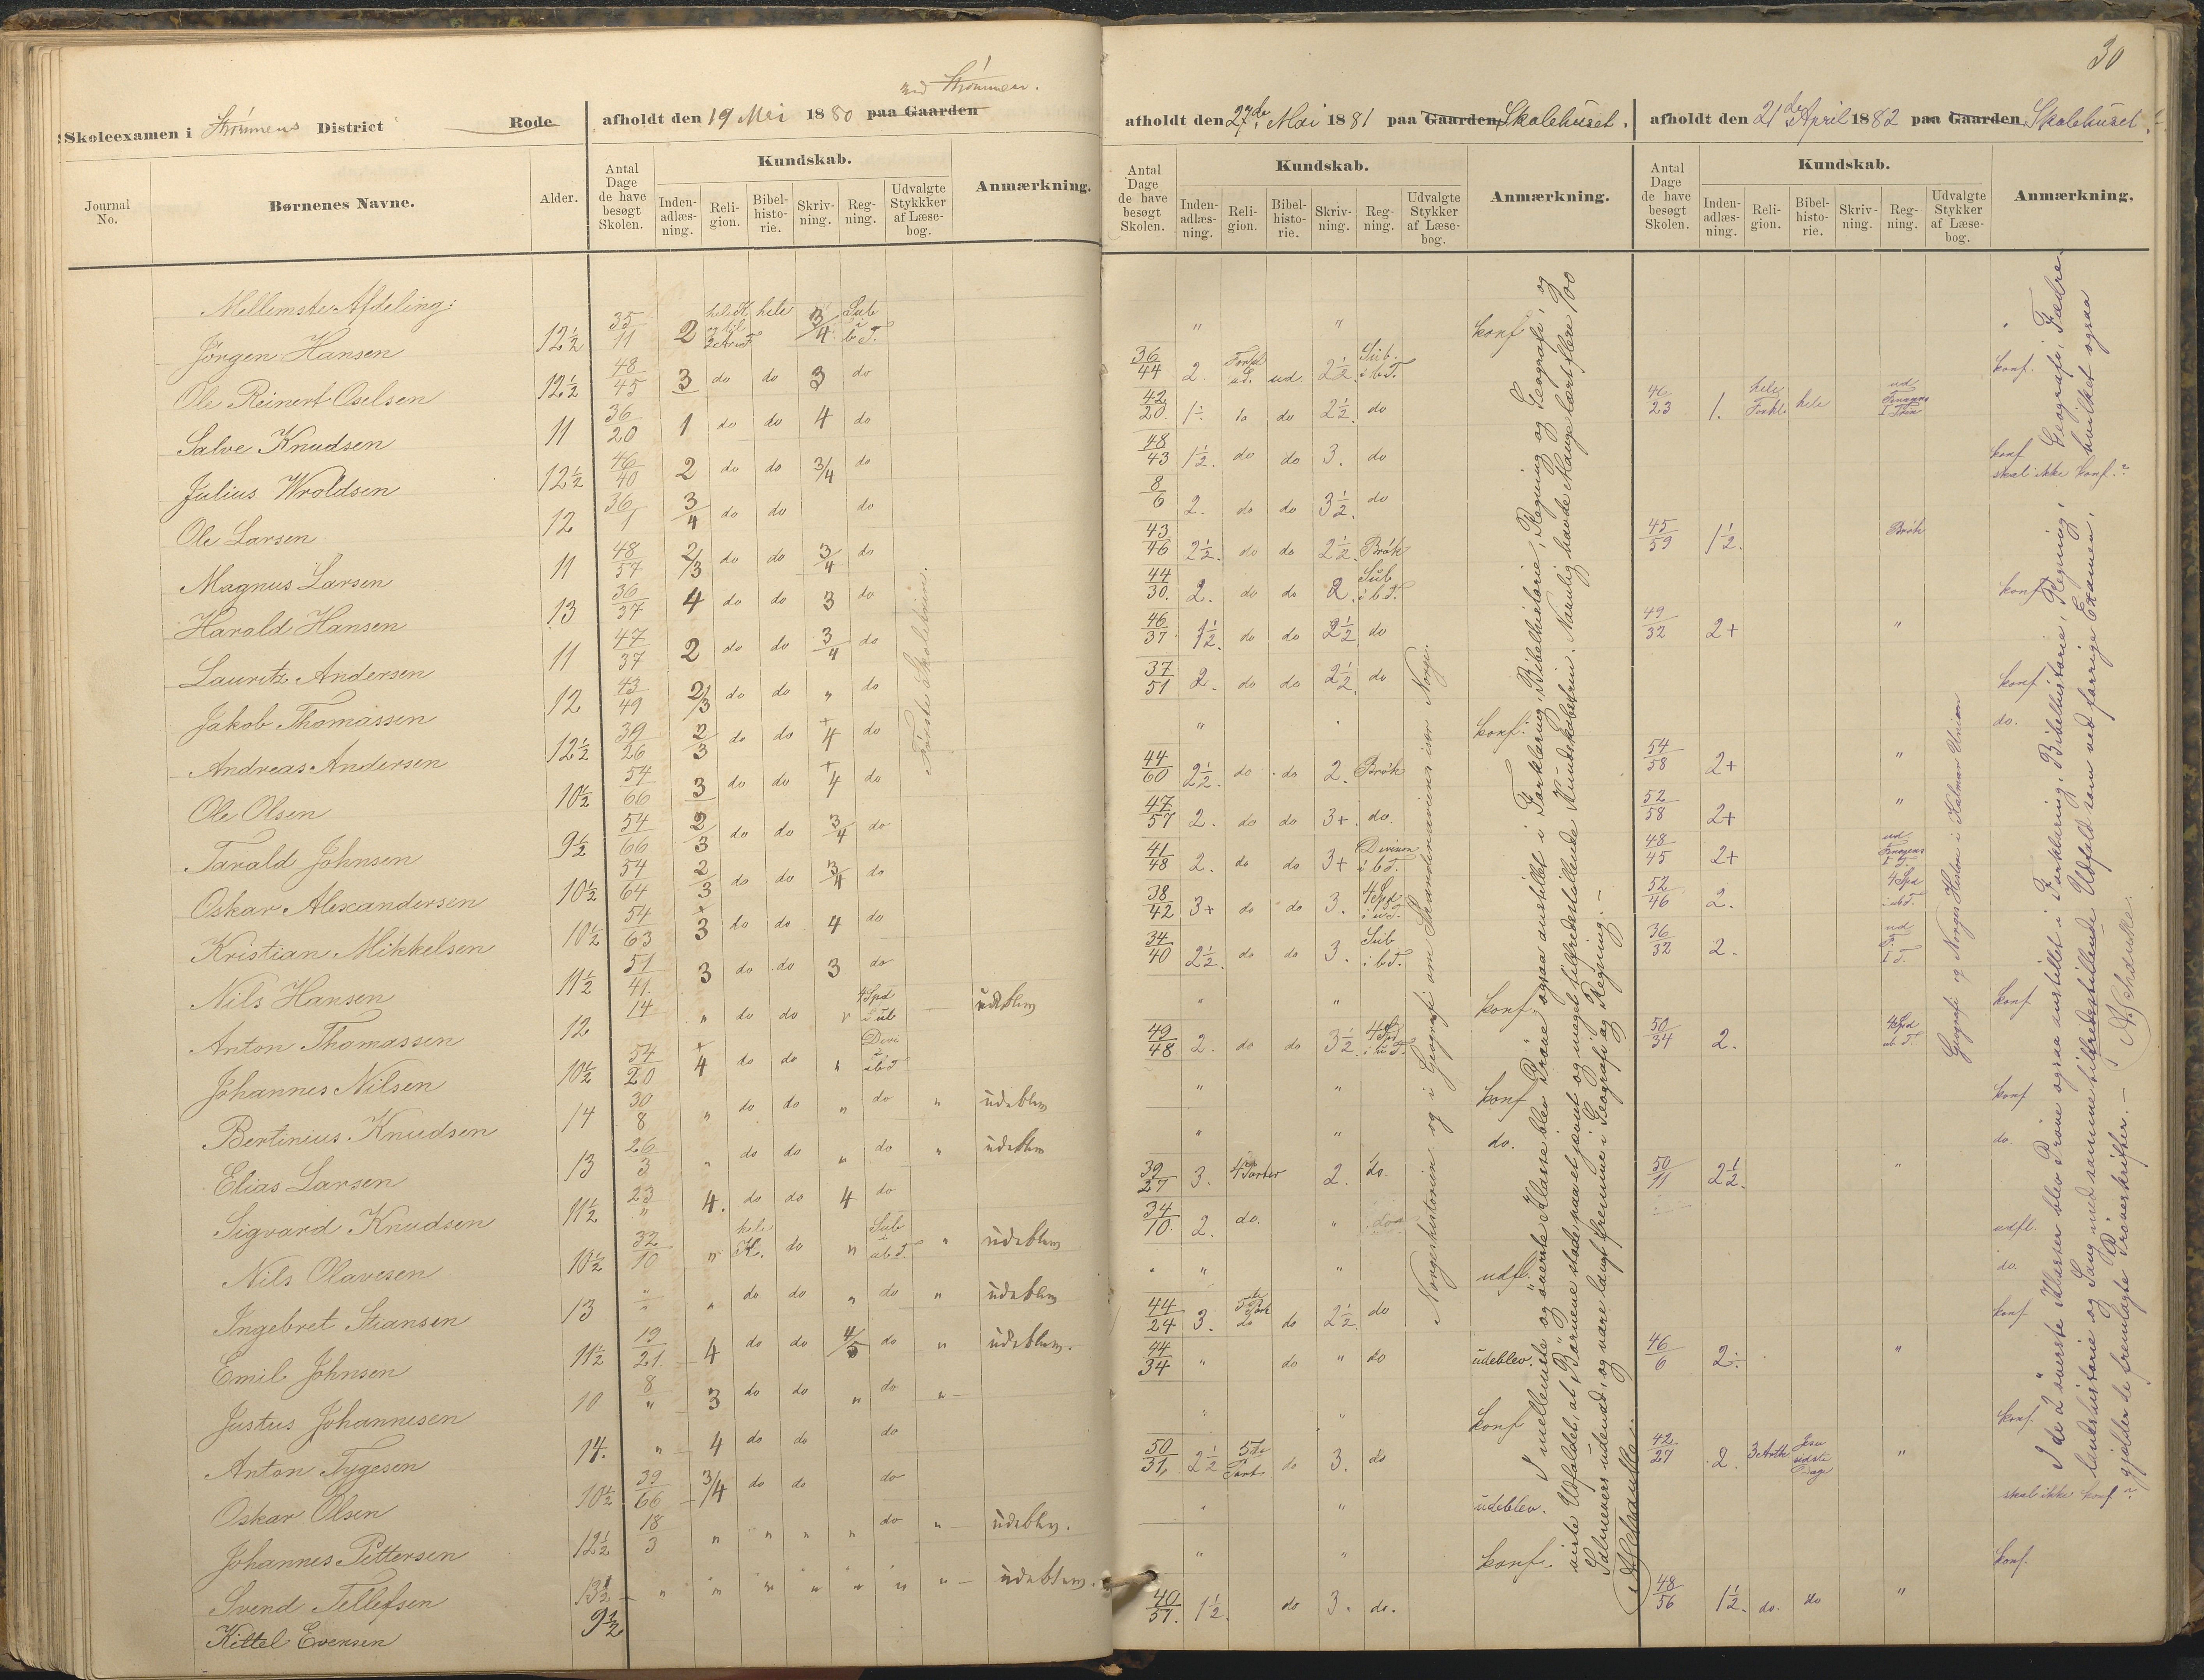 30
ved Strömmen.
Skoleexamen i Strömmens District Rode
afholdt den 19 Mai 1880 paa Gaarden
afholdt den 27de Mai 1881 paa Gaarden Skolehuset.
afholdt den 21de April 1882 paa Gaarden Skolehuset.
Journal No.
Børnenes Navne.
Alder.
Antal Dage de have besøgt Skolen.
Kundskab.
Inden-adlæs-ning.
Reli-gion.
Bibel-histo-rie.
Skriv-ning.
Reg-ning.
Udvalgte Stykkker af Læse-bog.
Anmærkning.
Antal Dage de have besøgt Skolen.
Kundskab.
Inden-adlæs-ning.
Reli-gion.
Bibel-histo-rie.
Skriv-ning.
Reg-ning.
Udvalgte Stykker af Læse-bog.
Anmærkning.
Antal Dage de have besøgt Skolen.
Kundskab.
Inden-adlæs-ning.
Reli-gion.
Bibel-histo-rie.
Skriv-ning.
Reg-ning.
Udvalgte Stykker af Læse-bog.
Anmærkning.
Mellemste Afdeling:
Jørgen Hansen 12½ 35/11 2 3/4 Sub i b T.
Ole Reinert Oselsen 12½ 48/45 3 do do 3 do
Salve Knudsen 11 36/20 1 do do 4 do
Julius Wroldsen 12½ 46/40 2 do do 3/4 do
Ole Larsen 12 36/1 3/4 do do do
Magnus Larsen 11 48/57 2/3 do do 3/4 do
Harald Hansen 13 36/37 4 do do 3 do
Lauritz Andersen 11 47/37 2 do do 3/4 do
Jakob Thomassen 12 43/49 2/3 do do " do
Andreas Andersen 12½ 39/26 2/3 do do +4 do
Ole Olsen 10½ 54/66 3 do do +4 do
Tarald Johnsen 9½ 54/66 2/3 do do 3/4 do
Oskar Alexandersen 10½ 54/64 2/3 do do 3/4 do
Kristian Mikkelsen 10½ 54/63 +3 do do 4 do
Nils Hansen 11½ 51/41 3 do do 3 do
Anton Thomassen 12 14 " do do " 4 Spd Sub udeblev
Johannes Nilsen 10½ 54/20 +4 do do "
Bertinius Knudsen 14 30/8 " do do " do " udeblev
Elias Larsen 13 26/3 " do do " do " udeblev
Sigvard Knudsen 11½ 23/" 4. do do 4 do
Nils Olavesen 10½ 32/10 " hele K. do " Sub i ub T " udeblev
Ingebret Stiansen 13 " " do do " do " udeblev
Emil Johnsen 11½ 19/21 4 do do 4/5 do " udeblev.
Justus Johannesen 10 8/" 3 do do " do "
Anton Tygesen 14. " 4 do do do
Oskar Olsen 10½ 39/66 3/4 do do do
Johannes Pettersen 12½ 18/3 " " " " do " udeblev.
Svend Tellefsen 13½ " " " " " " " udeblev.
Kittel Evensen 9½
Første Skoletrin.
" " konf
36/44 2. ud. ud 2½ Sub. i b T.
42/20 1½ do do 2½ do
48/43 1½. do do 3. do
8/6 2. do do 3½. do
43/46 2½. do do 2½ Brøk
44/30. 2. do do 2. Sub i b T.
46/37 1½ do do 2½ do
37/51 2. do do 2½. do
" " konf.
44/60 2½ do do 2. Brøk
47/57 2. do do 3+. do.
41/48 2. do do 3+ Division i b T.
38/42 3+ do do 3. 4 Spd
34/40 2½. do do 3. Sub i b T.
" " konf.
49/48 2. do do 3½.
" " konf
" " do.
39/27 3. 4 Parter 2. do.
34/10. 2. do. "
" " " udfl.
44/24 3. do 2½ do
44/34 " do " do udeblev.
" " konf
50/31. 2½ 5te Part. do 3. do
" " udeblev.
" " konf.
40/57. 1½. do 3. do.
Norgeshistorien og i Geografi om Skandinavien især Norge.
I mellemste og øverste Klasse blev Prøve ogsaa anstillet i Forklaring, Bibelhistorie, Regning og Geografi, og
viste Udfaldet, at Børnene stode paa et jævnt og meget tilfredsstillende Kundskabstrin. Navnlig havde Mange lært flere 100
Salmevers udenad, og vare langt fremme i Geografi og Regning. –
konf.
46/23 1. hele Forkl. hele
konf
skal ikke konf.?
45/59 1½. Brøk
konf
49/32 2+ "
konf
do.
54/58 2+ "
52/58 2+ "
48/45 2+
52/46 2. 4 Spd
36/32 2.
konf
50/34 2. 4 Spd ub. T.
konf
do.
50/11 2½. "
udfl.
do.
konf
46/6 2. "
konf.
42/27 2 3 Artk Jesu sidste Dage "
skal ikke konf?
konf.
48/56 1½. do. do "
Geografi og Norges Historie i Kalmar Union
I de 2 øverste Klasser blev Prøve ogsaa anstillet i Forklaring, Bibelhistorie, Regning, Geografi, Fædre-
landshistorie og Sang med samme tilfredsstillende Udfald som ved forrige Examen, hvilket ogsaa
gjælder de fremlagte Prøveskrifter. –